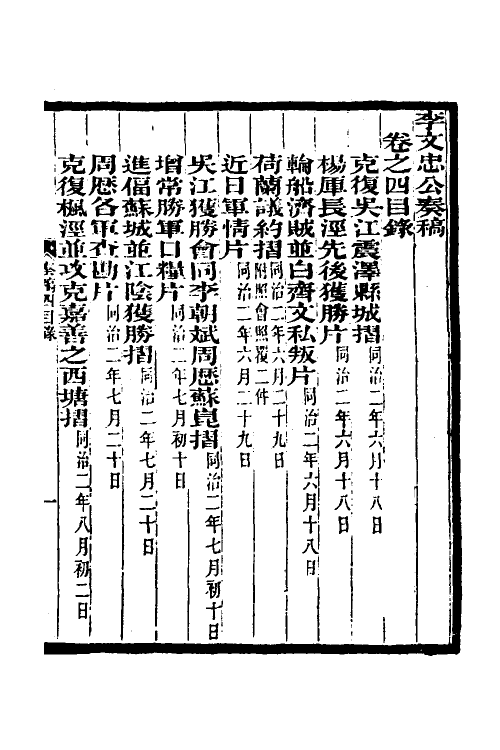 李文忠公奏稿
卷之四目錄
克復吳江震澤縣城摺同治二年六月十八日
楊厙長涇先後獲勝片同治二年六月十八日
輪船濟賊並白齊文私叛片同治二年六月十八日
荷蘭議約摺同治二年六月二十九日附照會照覆二件
近日軍情片同治二年六月二十九日
吳江獲勝會同李朝斌周歷蘇崑摺同治二年七月初十日
增常勝軍口糧片同治二年七月初十日
進偪蘇城並江陰獲勝摺同治二年七月二十日
周歷各軍查勘片同治二年七月二十日
克復楓涇並攻克嘉善之西塘摺同治二年八月初二日
奏稿四目錄
一